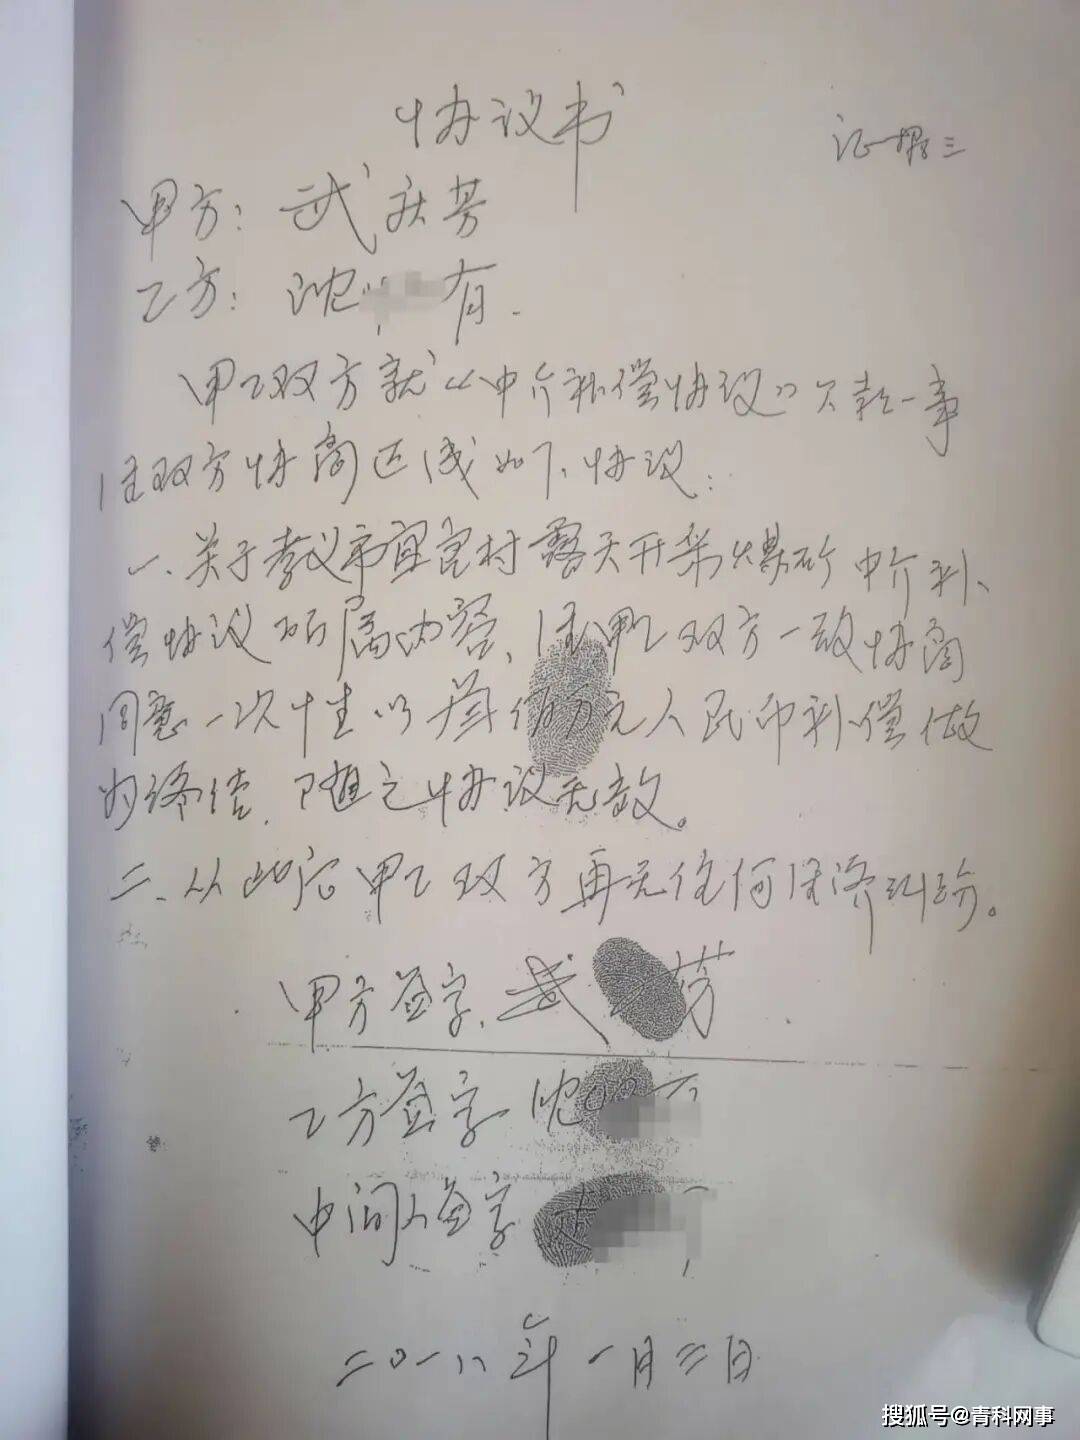 协议书
证据三
甲方：武庆芳
乙方：沈 有.
甲乙双方就《中介补偿协议》欠款一事
经双方协商达成如下协议：
一、关于孝义市宜良村露天开采煤矿中介补
偿协议所属内容、经甲乙双方一致协商
同意一次性以 佰万元人民币补偿做
为终结，随之协议无效。
二、从此后甲乙双方再无任何经济纠纷。
甲方签字、武 芳
乙方签字 沈
中间人签字
二〇一八年一月三日
搜狐号@青科网事